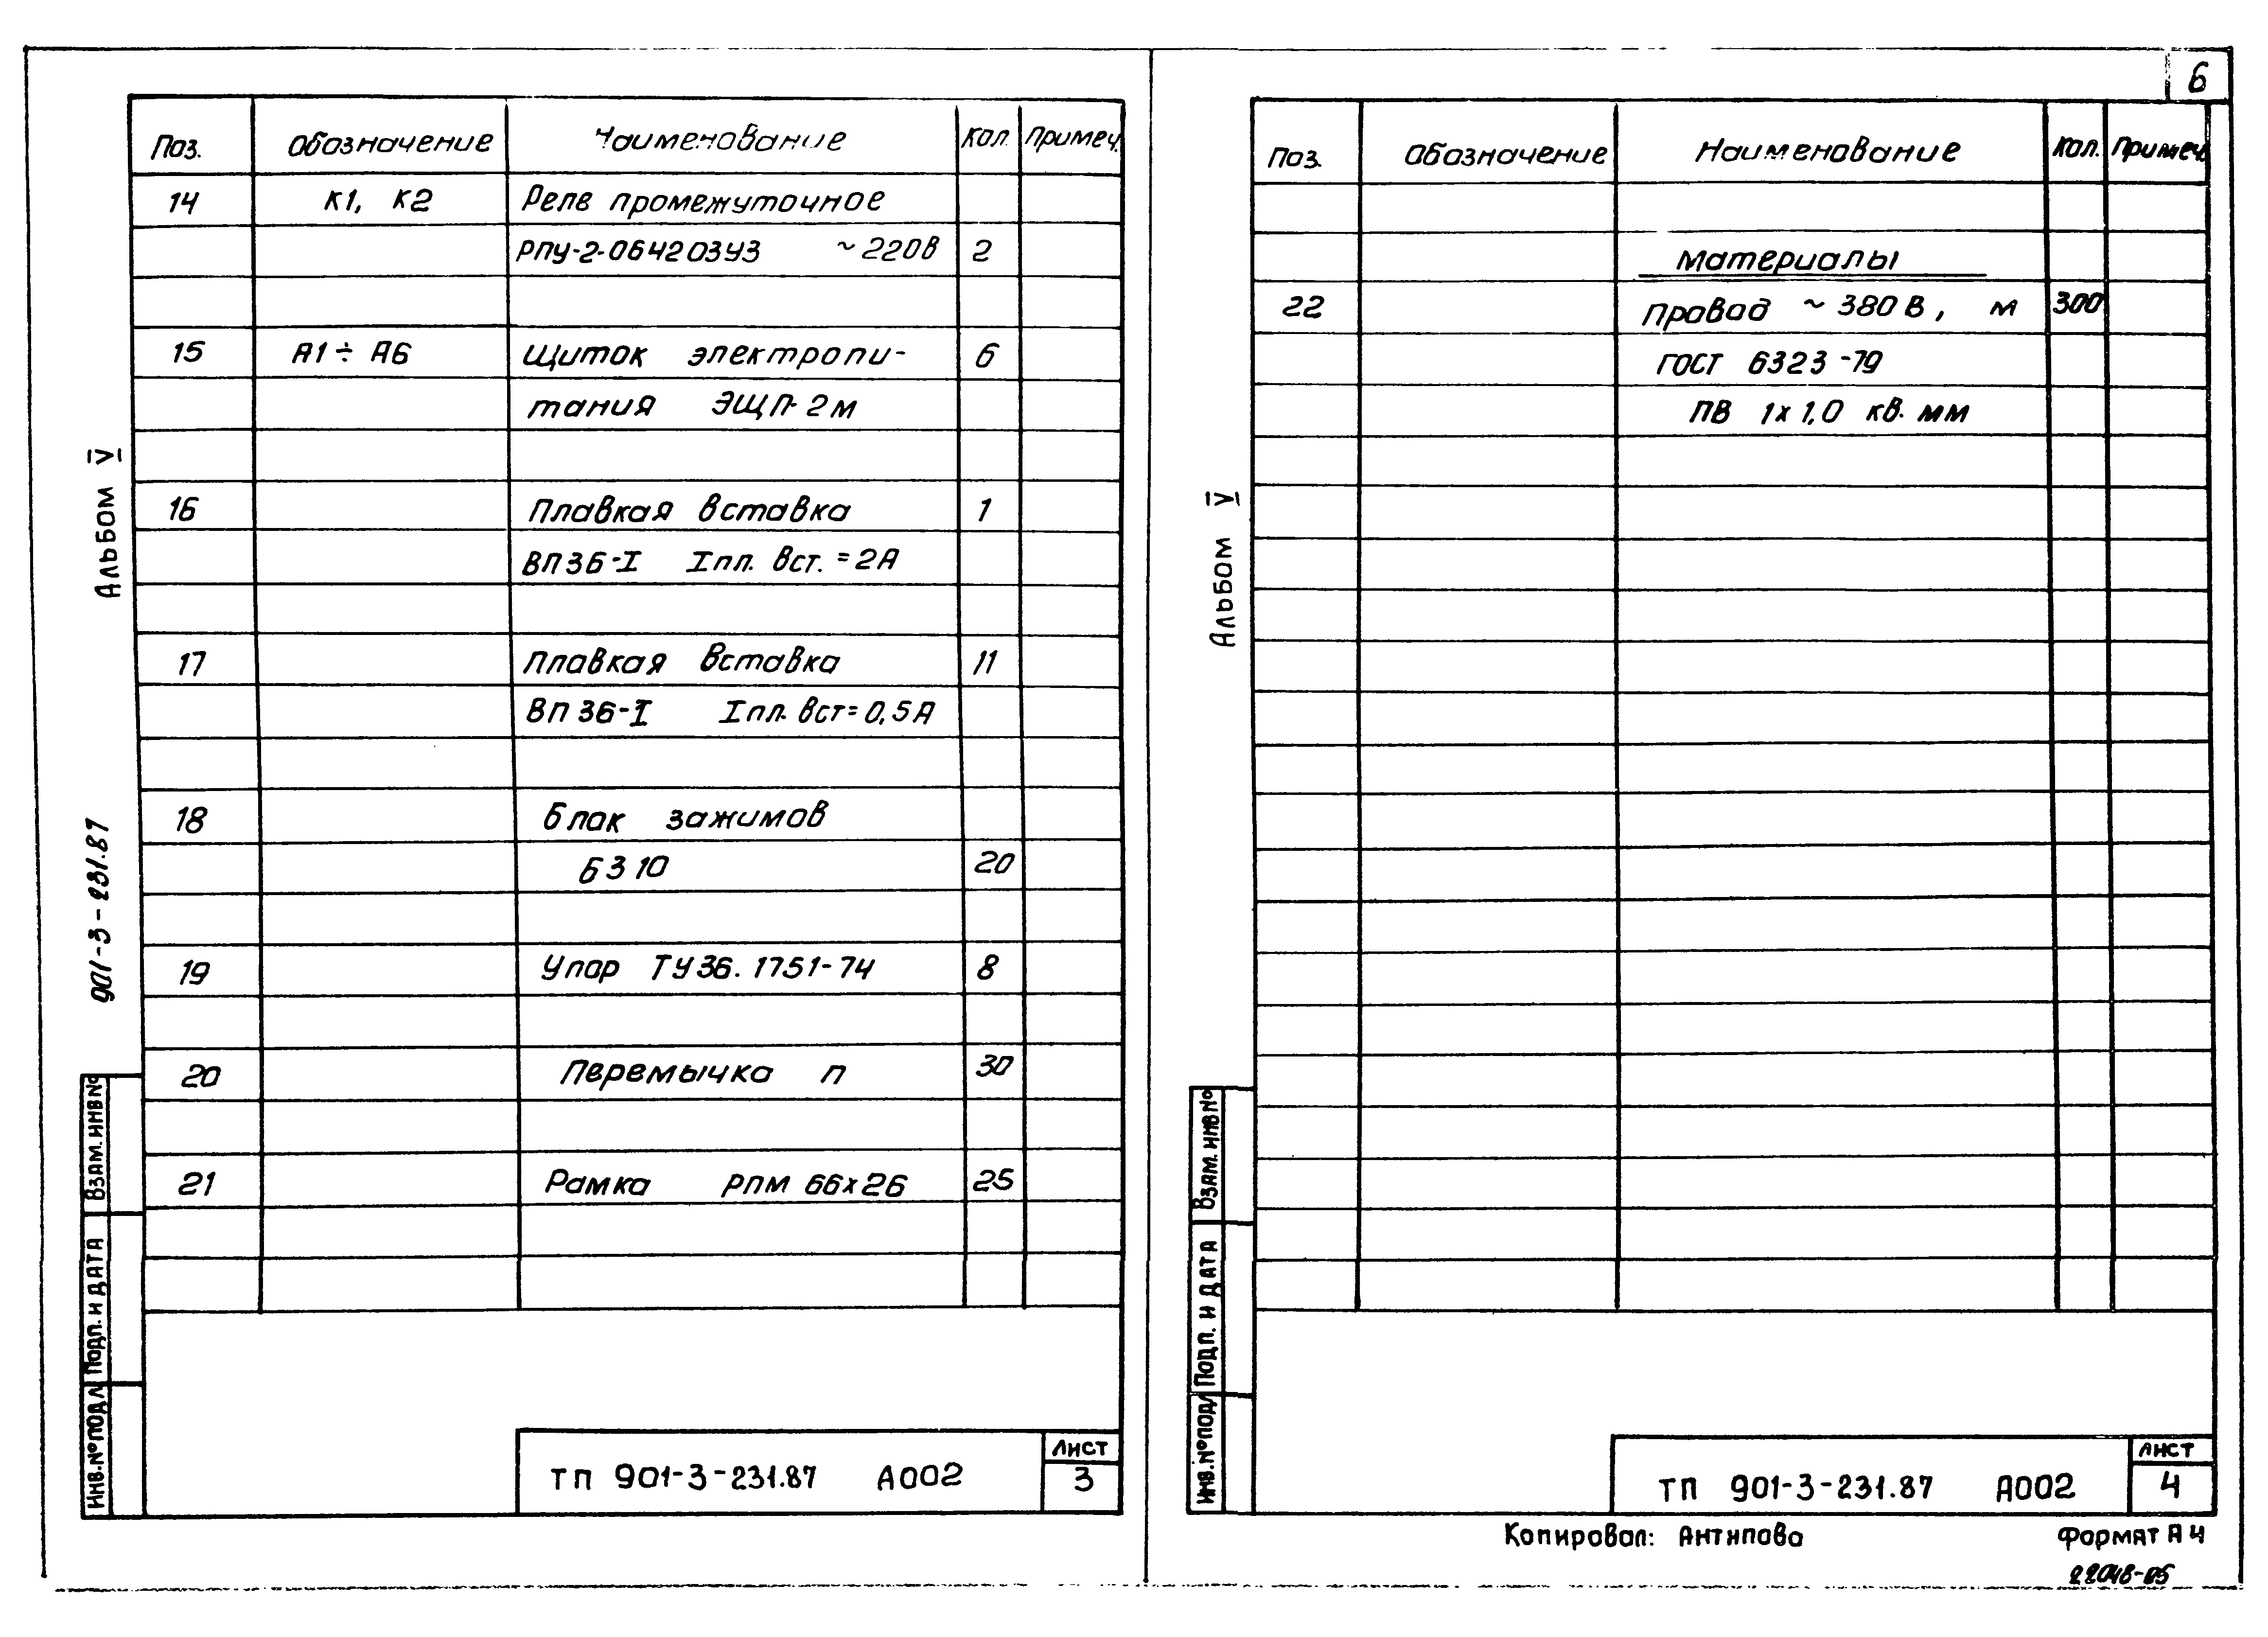 Поз. Обозначение Наименование Кол. Примеч.
14 К1, К2 Реле промежуточное
РПУ-2-06420ЗУЗ ~220В 2
15 А1÷А6 Щиток электропи- 6
тания ЭЩП-2м
16 Плавкая вставка 1
ВП36-I Iпл. вст.=2А
17 Плавкая вставка 11
ВП36-I Iпл. вст=0,5А
18 Блок зажимов
БЗ10 20
19 Упор ТУ36.1751-74 8
20 Перемычка П 30
21 Рамка РПМ 66х26 25
Альбом V
901-3-231.87
Взам. инв №
Подп. и дата
Инв. № подл
ТП 901-3-231.87 А002
Лист
3
6
Поз. Обозначение Наименование Кол. Примеч.
Материалы
22 Провод ~380В, м 300
ГОСТ 6323-79
ПВ 1х1,0 кв. мм
Альбом V
Взам. инв №
Подп. и дата
Инв. № подл
ТП 901-3-231.87 А002
Лист
4
Копировал: Антипова Формат А4
22048-05